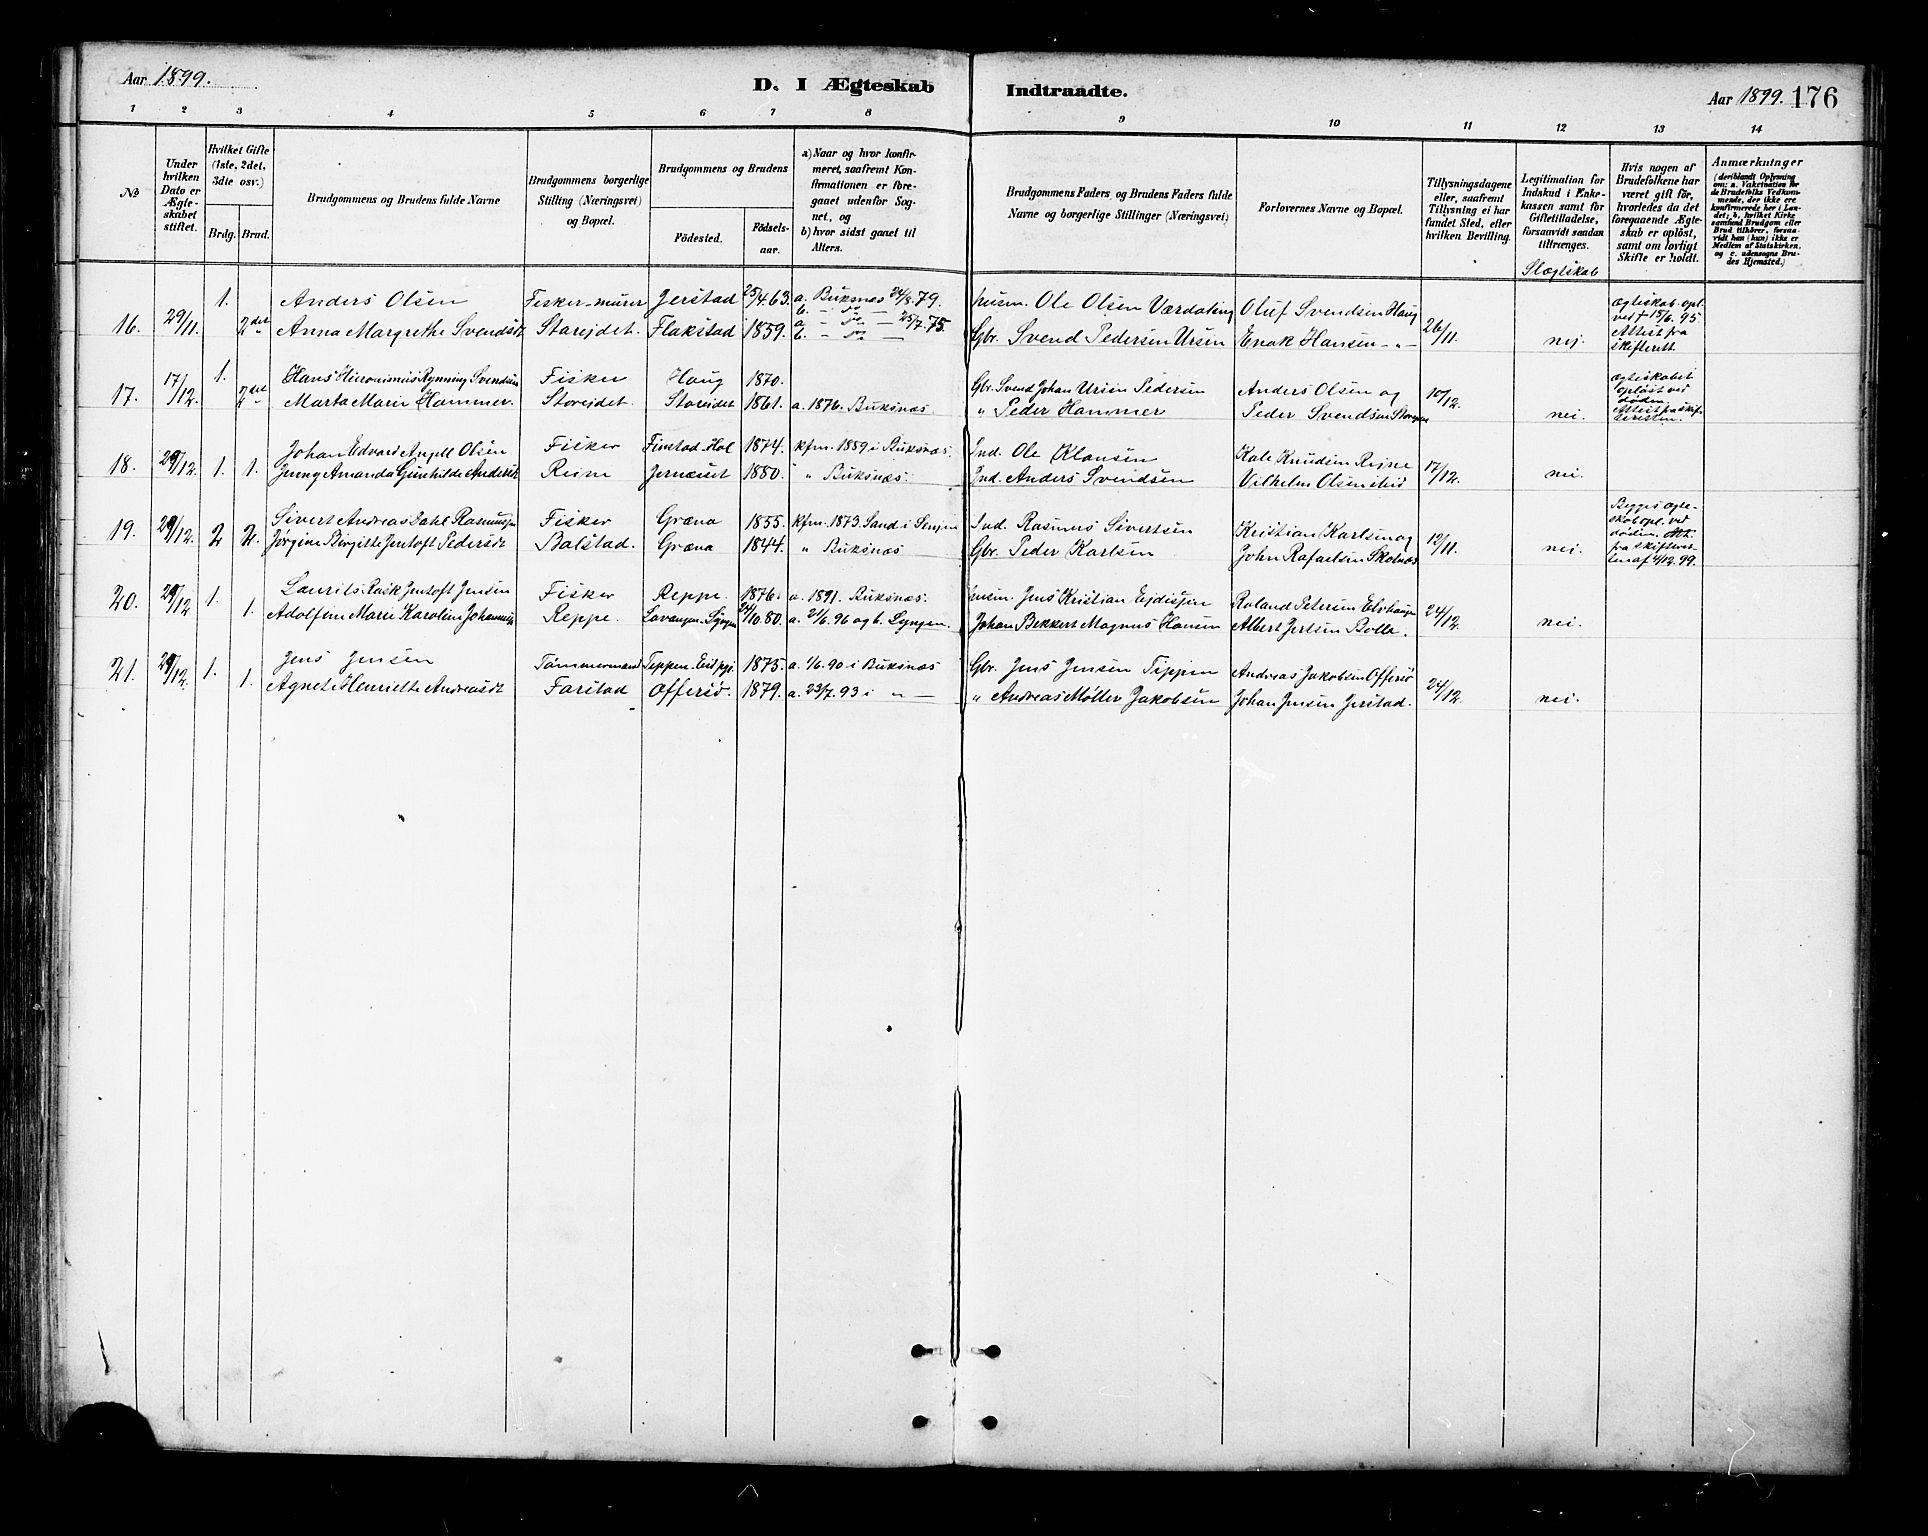 Aar 1899.
D. I Ægteskab Indtraadte.
Aar 1899. 176
1 2 3 4 5 6 7 8 9 10 11 12 13 14
No
Under hvilken Dato er Ægteskabet stiftet.
Hvilket Gifte (1ste, 2det, 3die osv.)
Brdg. Brud.
Brudgommens og Brudens fulde Navne
Brudgommens borgerlige Stilling (Næringsvei) og Bopæl.
Brudgommens og Brudens
Födested.
Födselsaar.
a) Naar og hvor konfirmeret, saafremt Konfirmationen er foregaaet udenfor Sognet, og
b) hvor sidst gaaet til Alters.
Brudgommens Faders og Brudens Faders fulde Navne og borgerlige Stillinger (Næringsvei)
Forlovernes Navne og Bopæl.
Tillysningsdagene eller, saafremt Tillysning ei har fundet Sted, efter hvilken Bevilling.
Legitimation for Indskud i Enkekassen samt for Giftetilladelse, forsaavidt saadan tiltrænges.
Slægtskab
Hvis nogen af Brudefolkene har været gift för, hvorledes da det foregaaende Ægteskab er oplöst, samt om lovligt Skifte er holdt.
Anmærkninger
(deriblandt Oplysning om: a. Vakcination for de Brudefolks Vedkommende, der ikke ere konfirmerede her i Landet; b. hvilket Kirkesamfund Brudgom eller Brud tilhörer, forsaavidt han (hun) ikke er Medlem af Statskirken, og c. udensogns Brudes Hjemsted.)
1. Anders Olsen Fisker-murer Jerstad 25/4.63. a. Buksnæs 24/8.79. husm. Ole Olsen Værdaling Oluf Svendsen Haug
16. 29/11. 2det Anna Margrethe Svendsdt Storejdet. Flakstad 1859. 25/7.75 Gbr. Svend Pedersen Ursin Enok Hansen -„- 26/11. nej.
ægteskab. opl. ved + 15/6. 95 Attest fra skifterett.
17/12. 1. Hans Hieronimus Rynning Svendsen Fisker Haug 1870. Gbr. Svend Johan Ursin Pedersen Anders Olsen og
17. 2det Marta Marie Hammer. Storejdet. Storejdet 1861. a. 1876. Buksnæs „ Peder Hammer Peder Svendsen 10/12. nei.
Ægteskabet opløst ved döden. Attest fra
Johan Edvard Angell Olsen Fisker Finstad. Hol 1874. kfm. 1889 i Buksnæs. Ind. Ole Klausen Kale Knudsen Rejne
18. 29/12. 1. 1. Jenny Amanda Gunhilde Andersdt Reine Jernæuset 1880. „ Buksnæs. Ind. Anders Svendsen Vilhelm Olsen 17/12. nei.
Sivert Andreas Dahl Rasmussen Fisker Græna 1855. kfm. 1873. Sand i Senjen Ind. Rasmus Sivertsen Kristian Karlsen og
19. 29/12. 2 2. Jørgine Birgitte Jentoft Pedersdt Balstad. Græna 1844. „ Buksnæs Gbr. Peder Karlsen John Rafaelsen Skotnæs 12/11. nei.
Begges ægteskab opl. ved döden. Att. fra skifteretten af 4/12. 99.
Laurits Rask Jentoft Jensen Fisker Reppe. 1876. a. 1891. Buksnæs. husm. Jens Kristian Roland Petersen
20. 29/12 1. 1. Adolfine Marie Karoline Johansdt Reppe. Lavangen. Lyngen 24/10 80. a. 21/6. 96 og b. Lyngen. Johan Bekkert Magnus Hansen Albert Bolle. 24/12. nei.
Jens Jensen Tømmermand Teppen. 1875. a. 1/6. 90 i Buksnæs Gbr. Jens Jensen Tippen Andreas Jakobsen Offersö
21. 29/12. 1. 1. Agnete Henriette Andreasdt Farstad Offersö. 1879. a. 23/7. 93 i „ — „ Andreas Møller Jakobsen Johan Jensen Jerstad. 24/12. nei.